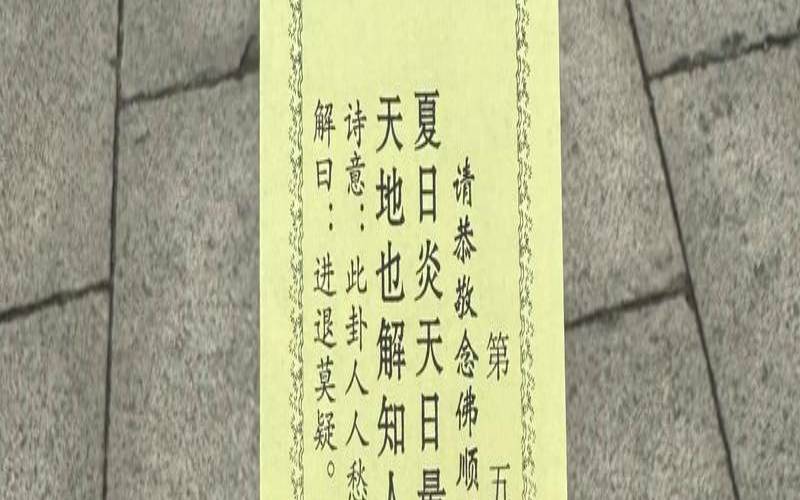 第五
请恭敬念佛顺
夏日炎天日最
天地也解知人
诗意：此卦人人愁
解曰：进退莫疑。